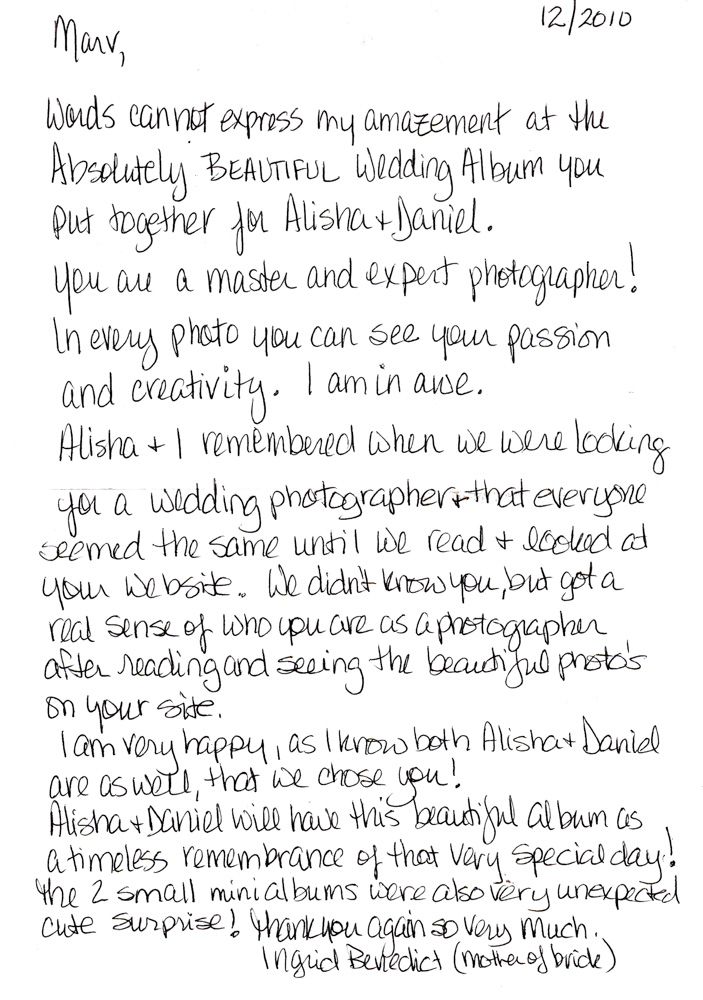 12/2010
Marv,
Words cannot express my amazement at the
Absolutely BEAUTIFUL Wedding Album you
put together for Alisha + Daniel.
You are a master and expert photographer!
In every photo you can see your passion
and creativity. I am in awe.
Alisha + I remembered when we were looking
for a wedding photographer + that everyone
seemed the same until we read + looked at
your website. We didn't know you, but got a
real sense of who you are as a photographer
after reading and seeing the beautiful photo's
on your site.
I am very happy, as I know both Alisha + Daniel
are as well, that we chose you!
Alisha + Daniel will have this beautiful album as
a timeless remembrance of that very special day!
The 2 small mini albums were also very unexpected
cute surprise! Thank you again so very much.
Ingrid Benedict (mother of bride)